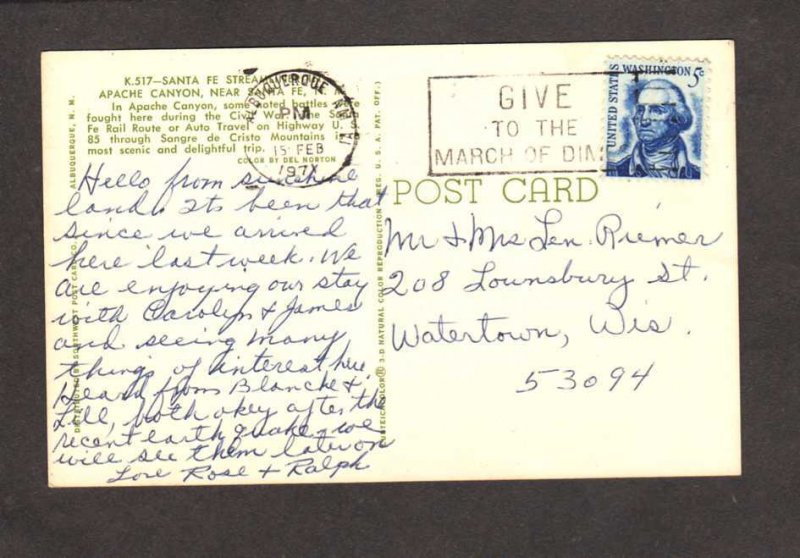 K.517—SANTA FE
APACHE CANYON, NEAR
In Apache Canyon, some noted battles were
fought here during the Civil War. The Santa
Fe Rail Route or Auto Travel on Highway U. S.
85 through Sangre de Cristo Mountains is a
most scenic and delightful trip.
COLOR BY DEL NORTON
ALBUQUERQUE N. M.
PM
15 FEB
197
GIVE
TO THE
MARCH OF DIM
UNITED STATES
WASHINGTON 5c
POST CARD
Hello from sunshine
land. Its been that
since we arrived
here last week. We
are enjoying our stay
with Carolyn & James
and seeing many
things of interest here.
Heard from Blanche &
Lill, both okey after the
recent earth quake. we
will see them later on
Love Rose + Ralph
Mr & Mrs Len. Riemer
208 Lounsbury St.
Watertown, Wis.
53094
DISTRIBUTED BY SOUTHWEST POST CARD CO. ALBUQUERQUE, N. M.
3-D NATURAL COLOR REPRODUCTION REG. U. S. A. PAT. OFF.